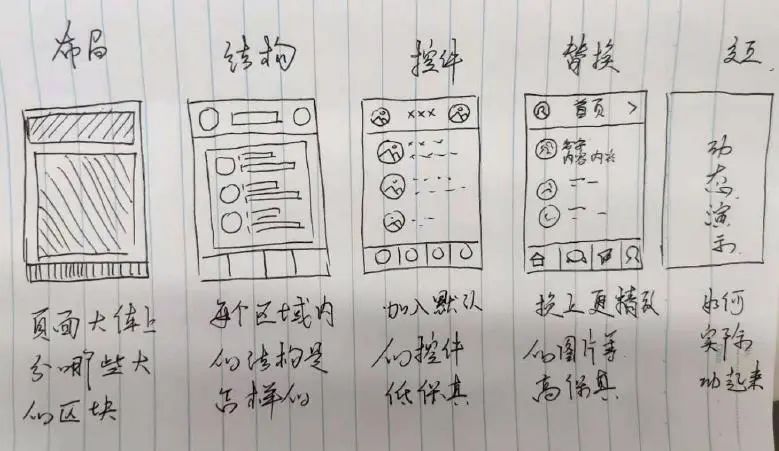 布局
结构
控件
替换
交互
×××
首页 >
名字
内容内容
动
态
演
示
页面大体上
分哪些大
的区块
每个区域内
的结构是
怎样的
加入默认
的控件
低保真
换上更精致
的图片等
高保真
如何
实际
动起来